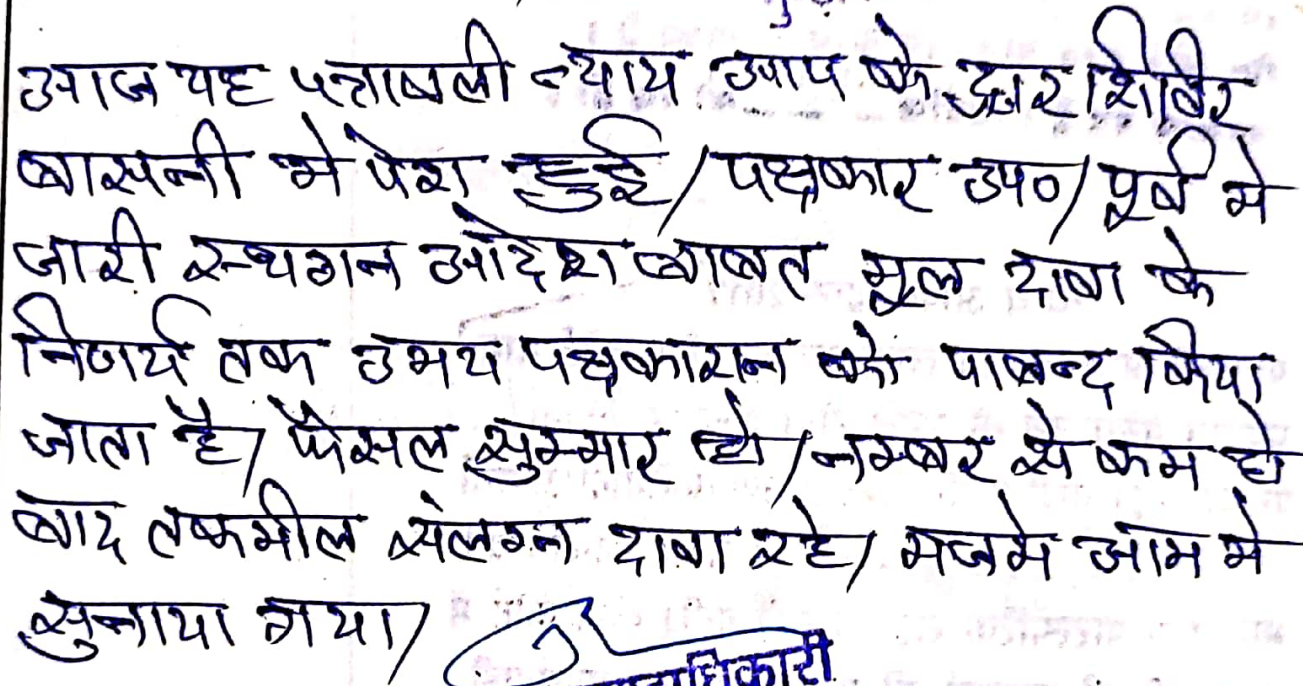 आज यह पत्रावली न्याय आप के द्वार शिविर
बासनी मे पेश हुई/पक्षकार उप०/पूर्व मे
जारी स्थगन आदेश बाबत मूल दावा के
निर्णय तक उभय पक्षकारान को पाबन्द किया
जाता है/ फैसल सुम्मार हो/नम्बर से कम हो
बाद तकमील संलग्न दावा रहे/ मजमे आम मे
सुनाया गया/